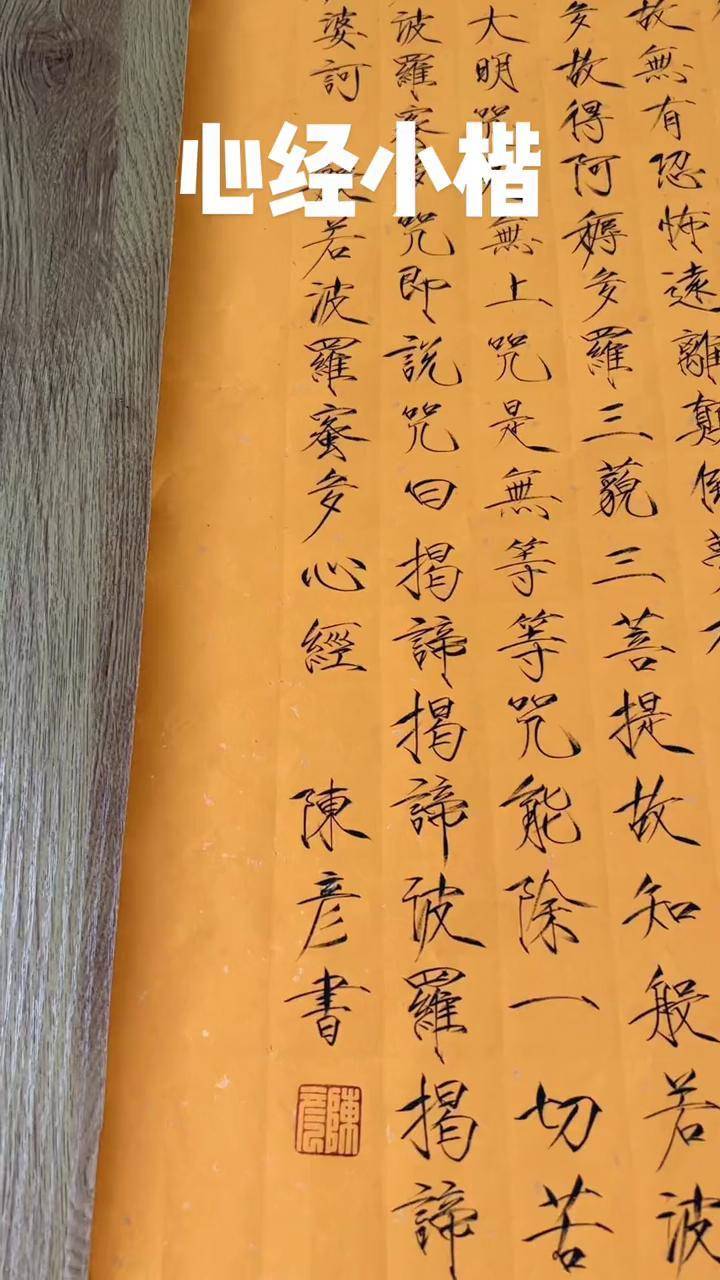 心经小楷
故無有恐怖遠離顛倒
多故得阿耨多羅三藐三菩提故知般若波
大明咒是無上咒是無等等咒能除一切苦
波羅蜜多咒即說咒曰揭諦揭諦波羅揭諦
婆訶 般若波羅蜜多心經 陳彦書
陳彦